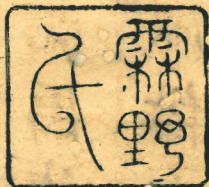 霖野
氏